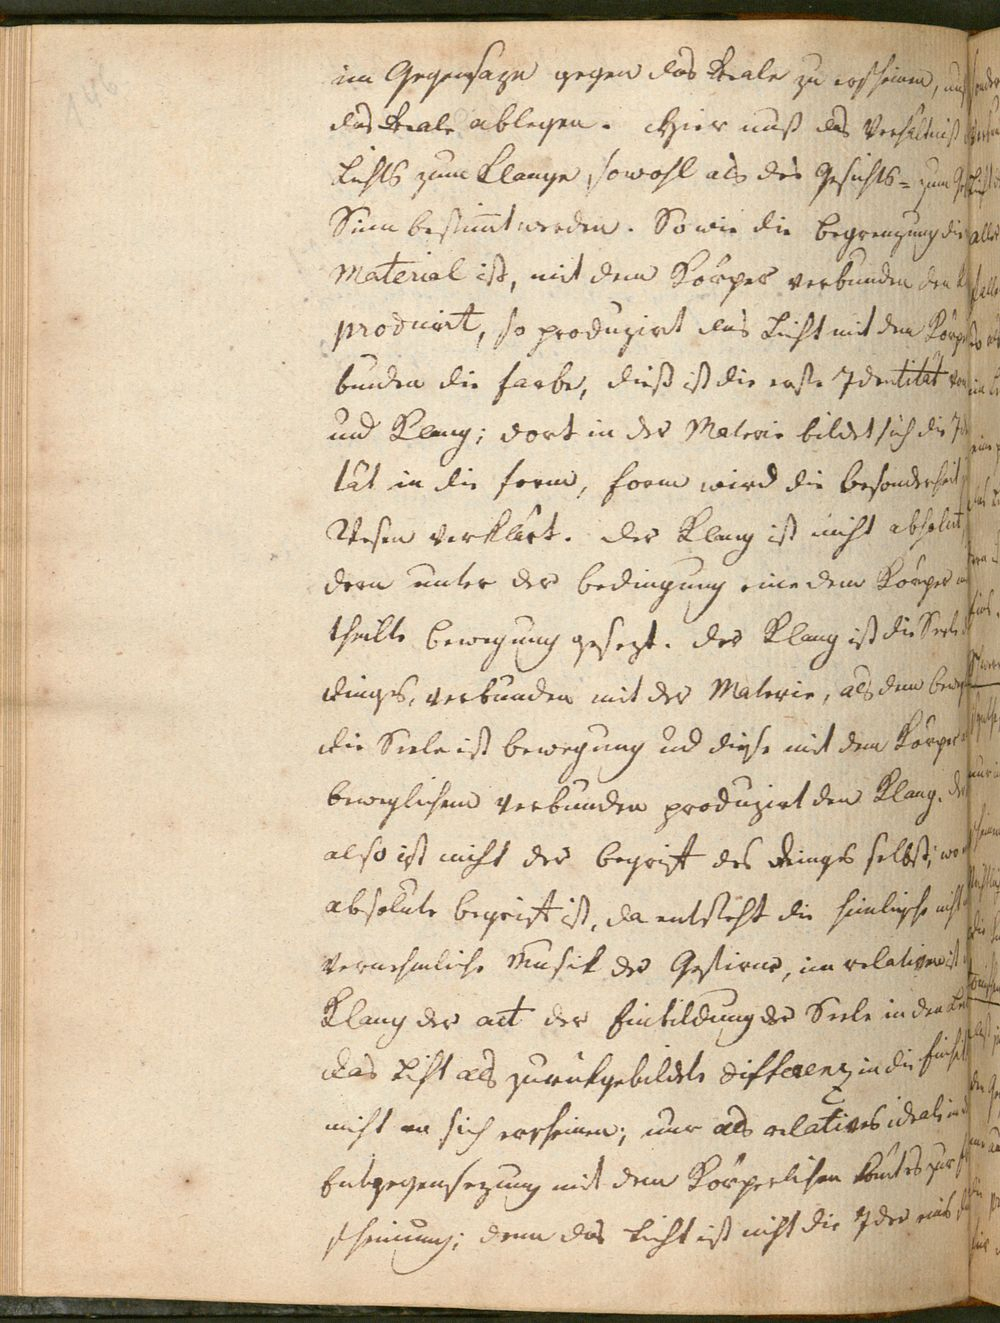 146
im Gegensaze gegen das Reale zu erscheinen, muß
das Reale ablegen. Hier muß das Verhältniß
Lichts zum Klange, sowohl als des Gesichts- zum
Sinn bestim̄t werden. So wie die Begrenzung die
Material ist, mit dem Körper verbunden den
produirt, so produzirt das Licht mit dem Körper
bunden die Farbe, dieß ist die erste Identität von
und Klang; dort in der Materie bildet sich die
tät in die Form, Form wird die Besonderheit
Wesen verklärt. Der Klang ist nicht absolut
dern unter der Bedingung eine dem Körper
theilte Bewegung gesezt. Der Klang ist die Seele
Dinges, verbunden mit der Materie, als dem
die Seele ist Bewegung und diese mit dem Körper
beweglichem verbunden produzirt den Klang. Der
also ist nicht der Begriff des Dinges selbst; wo
absolute Begriff ist, da entsteht die sinnliche nicht
vernehmliche Musik der Gestirne, im relativen ist
Klang der act der Einbildung der Seele in den
das Licht als zurükgebildete Differenz in die Einheit
nicht an sich erscheinen; nur als relatives ideale in
Entgegensezung mit dem Körperlichen kom̄t es zur
scheinung; denn das Licht ist nicht die Idee